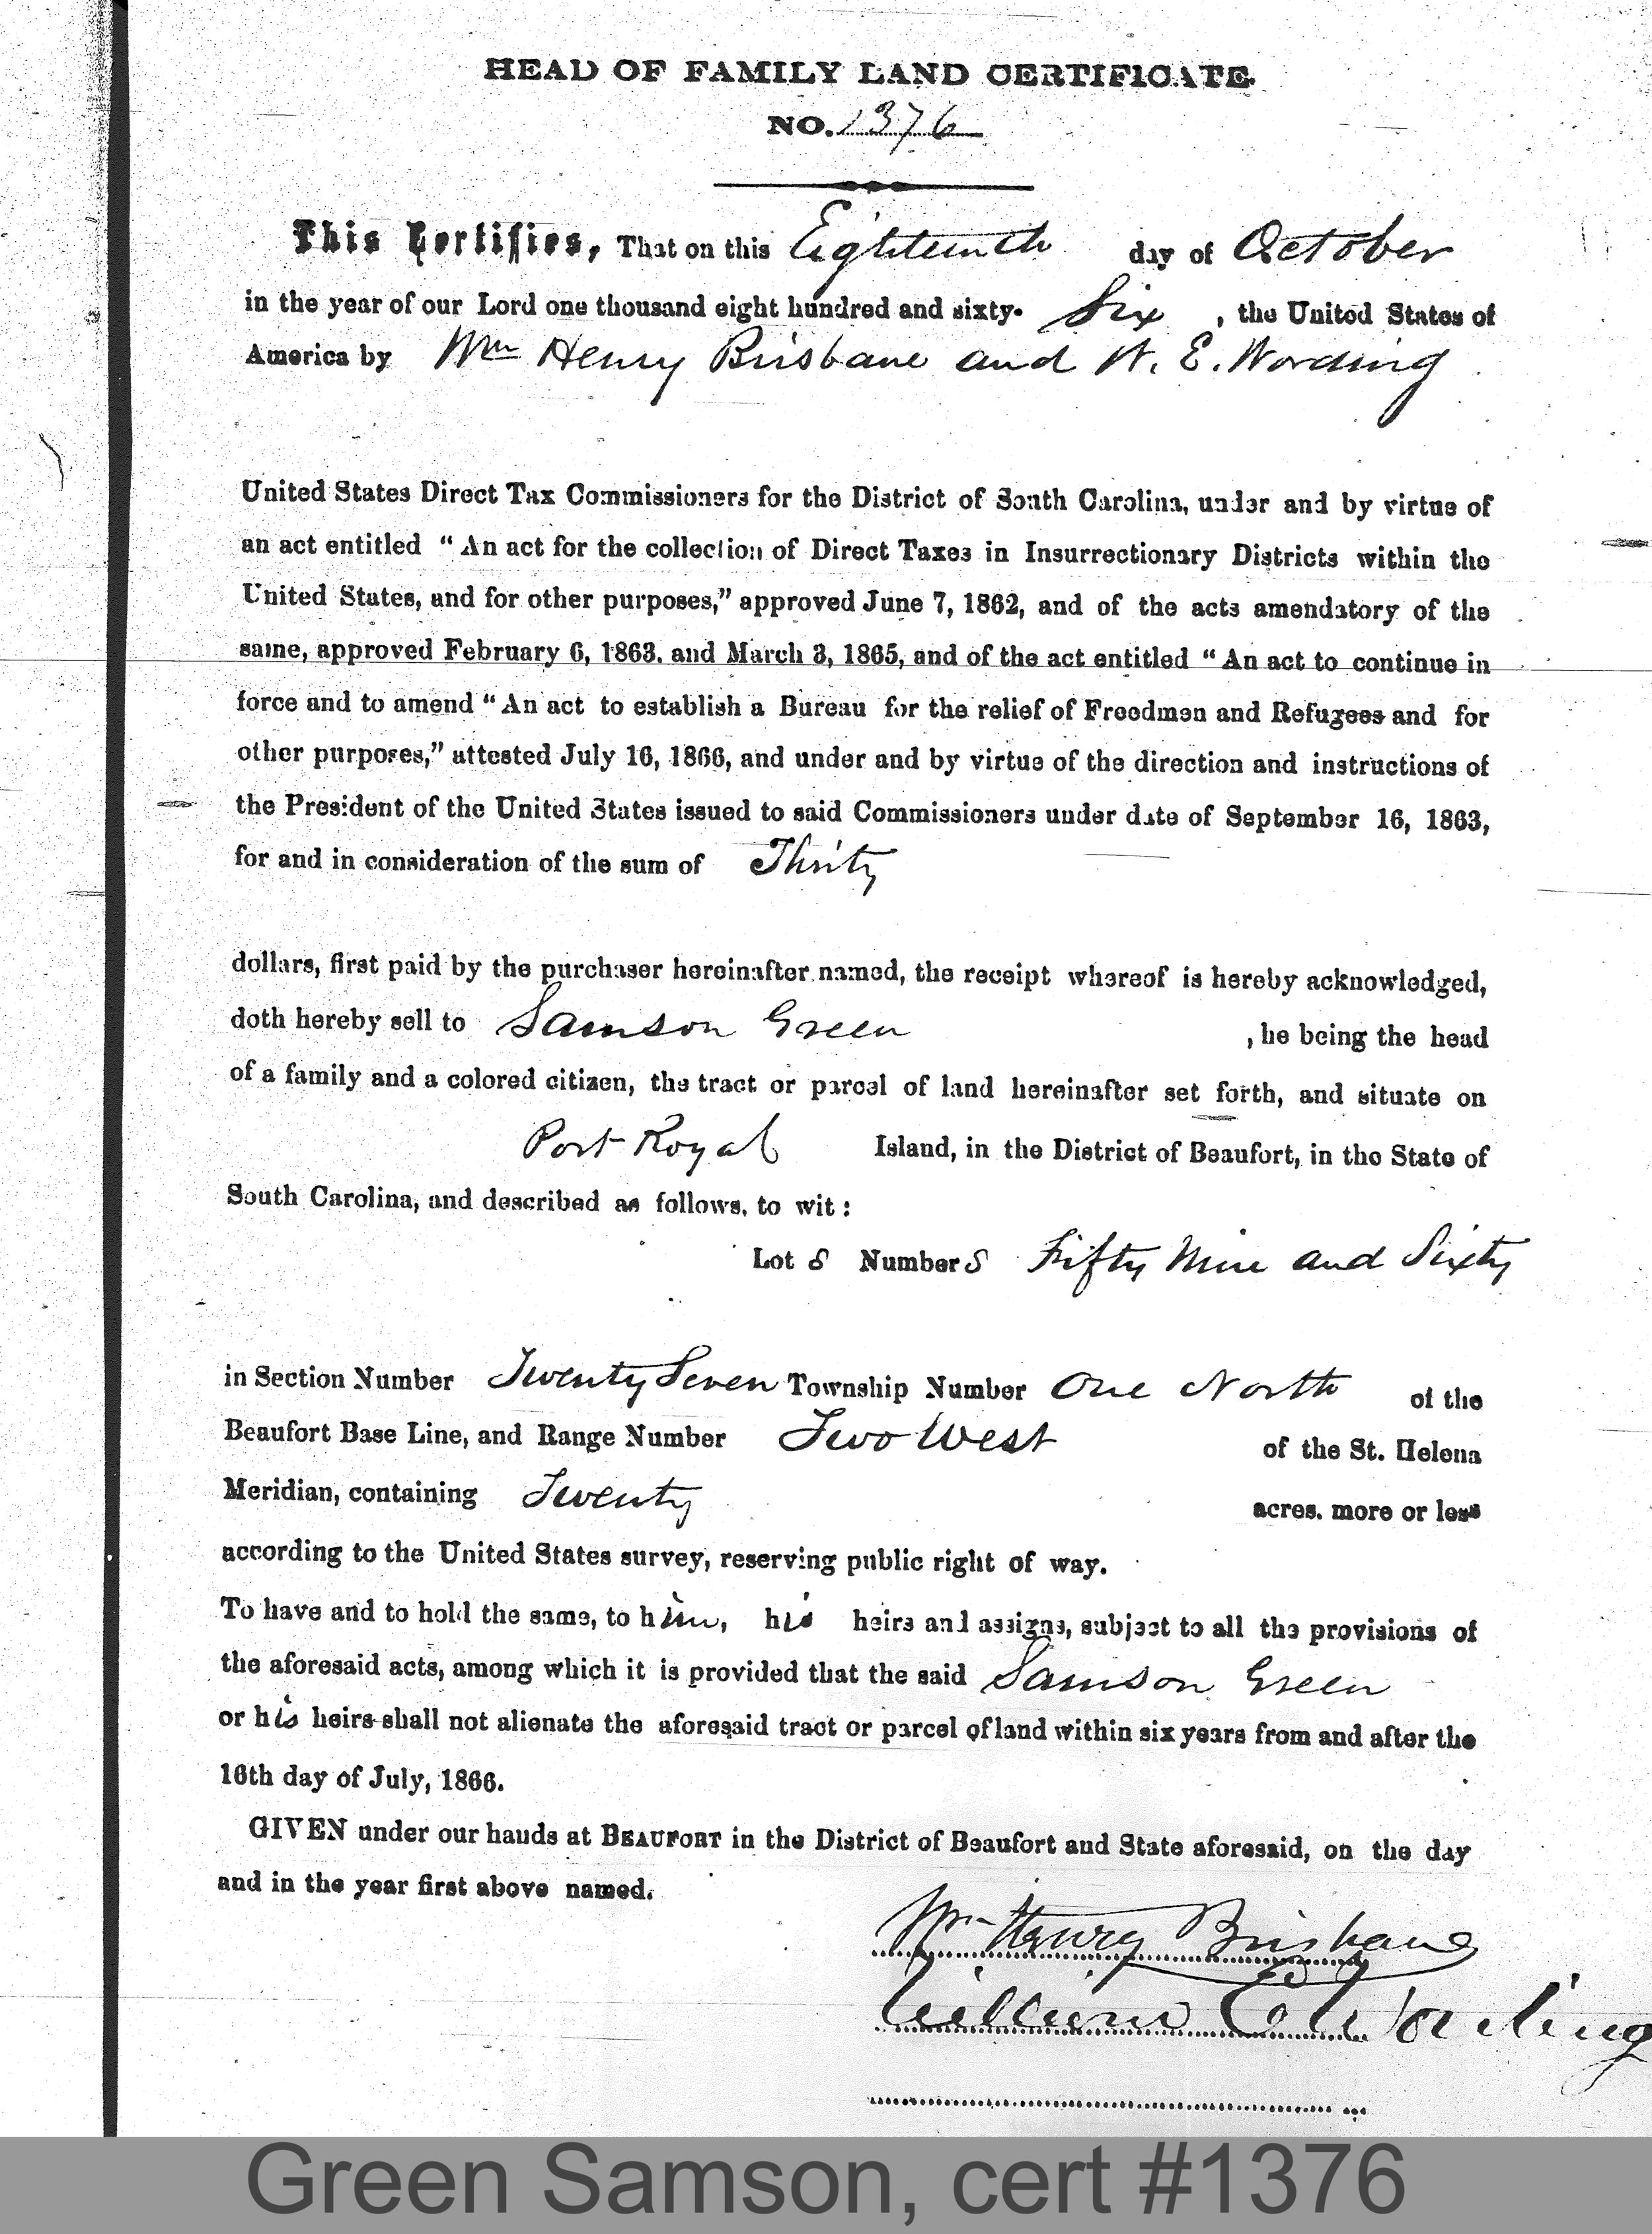 HEAD OF FAMILY LAND CERTIFICATE.
NO. 1376
This Certifies, That on this Eighteenth day of October
in the year of our Lord one thousand eight hundred and sixty- Six , the United States of
America by Wm Henry Brisbane and W. E. Wording
United States Direct Tax Commissioners for the District of South Carolina, under and by virtue of
an act entitled "An act for the collection of Direct Taxes in Insurrectionary Districts within the
United States, and for other purposes," approved June 7, 1862, and of the acts amendatory of the
same, approved February 6, 1863, and March 3, 1865, and of the act entitled "An act to continue in
force and to amend "An act to establish a Bureau for the relief of Freedmen and Refugees and for
other purposes," attested July 16, 1866, and under and by virtue of the direction and instructions of
the President of the United States issued to said Commissioners under date of September 16, 1863,
for and in consideration of the sum of Thirty
dollars, first paid by the purchaser hereinafter named, the receipt whereof is hereby acknowledged,
doth hereby sell to Samson Green , he being the head
of a family and a colored citizen, the tract or parcel of land hereinafter set forth, and situate on
Port Royal Island, in the District of Beaufort, in the State of
South Carolina, and described as follows, to wit:
Lot s Numbers Fifty Nine and Sixty
in Section Number Twenty Seven Township Number One North of the
Beaufort Base Line, and Range Number Two West of the St. Helena
Meridian, containing Twenty acres, more or less
according to the United States survey, reserving public right of way.
To have and to hold the same, to him, his heirs and assigns, subject to all the provisions of
the aforesaid acts, among which it is provided that the said Samson Green
or his heirs shall not alienate the aforesaid tract or parcel of land within six years from and after the
16th day of July, 1866.
GIVEN under our hands at BEAUFORT in the District of Beaufort and State aforesaid, on the day
and in the year first above named.
Wm Henry Brisbane
William E. Wording
Green Samson, cert #1376